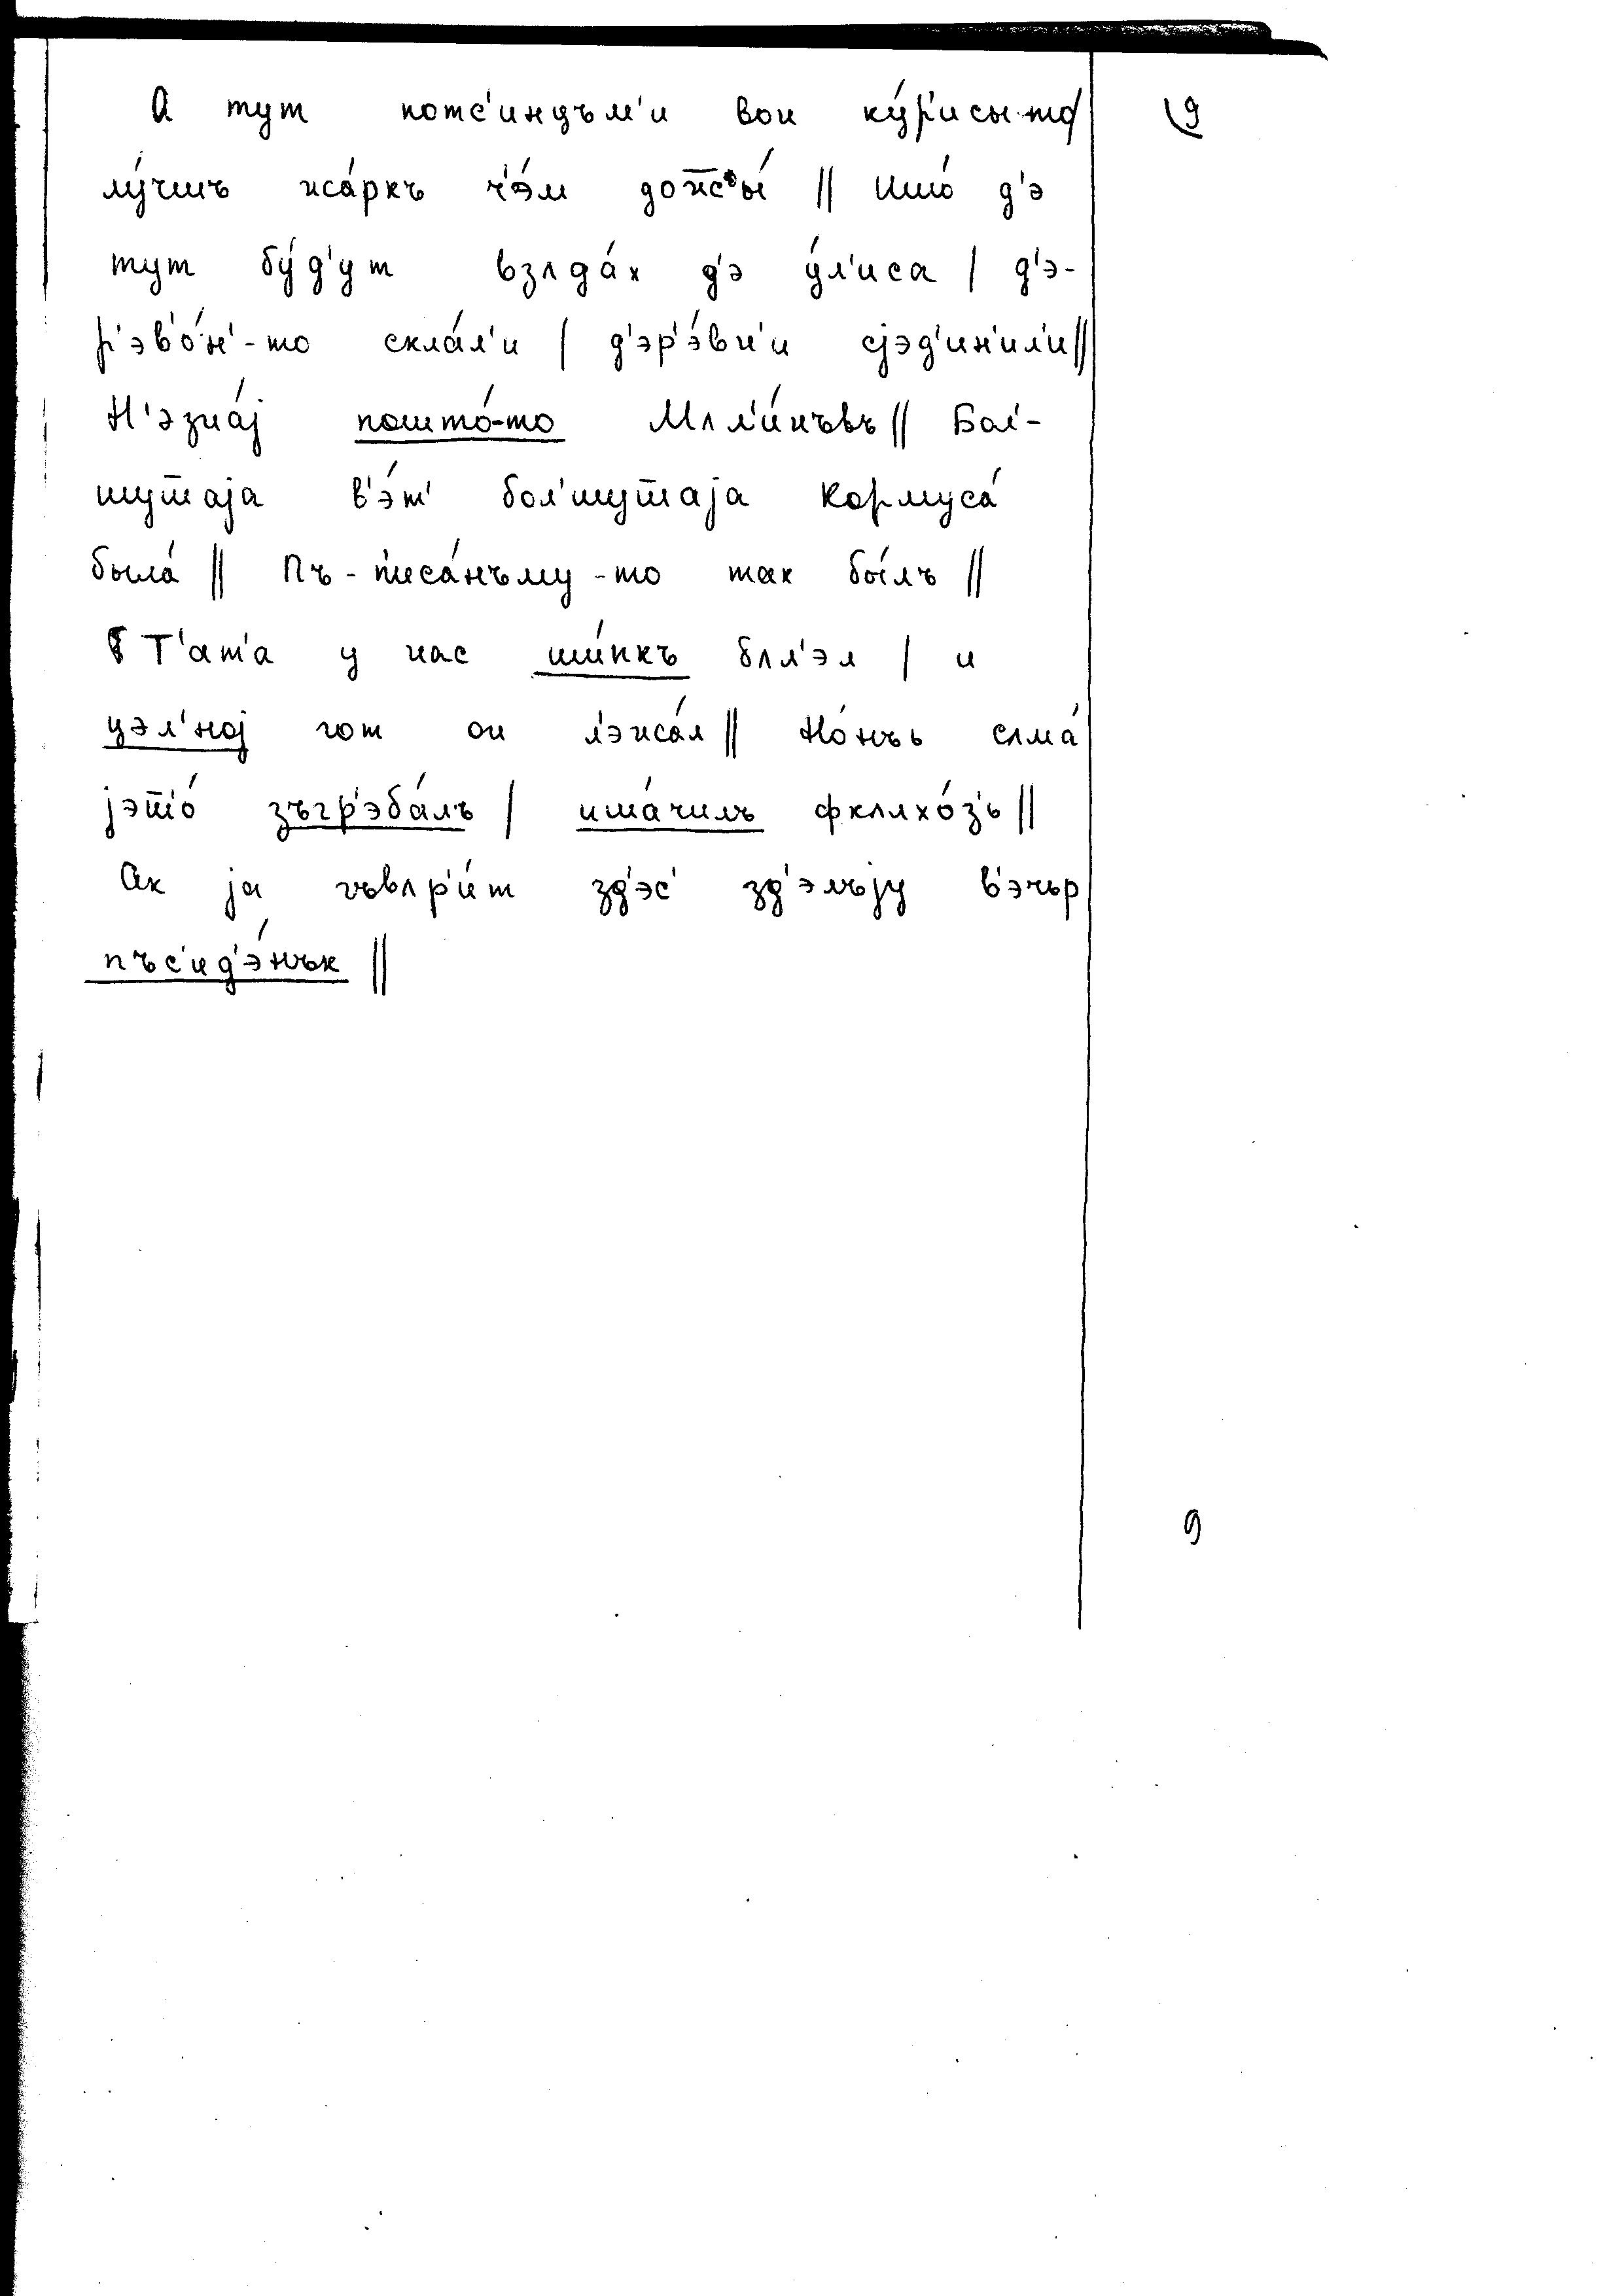 А тут потс'индъм'и вон ку́р'исы-то/ 9
лу́чшъ жа́ркъ ч'э́м дожжы́ // Ишо́ д'э
тут бу́д'ут взлда́х д'э у́л'иса / д'э-
р'эв'о́н'-то скла́л'и / д'эр'э́вн'и сjэд'ин'ил'и //
Н'эзна́j пошто́-то Млл'и́нъвъ // Бол'-
шуш̅аjа в'э́т' бол'шуш̅аjа кормуса́
была́ // Пъ-п'иса́нъму-то так бы́лъ //
Т'ат'а у нас ши́пкъ бл'эл / и
цэл'ноj гот он л'эжа́л // Но́нъь слма́
jэш̅о́ зъгр'эба́лъ / ишачилъ фклхо́з'ь //
Ак jа гъвлр'и́т зд'эс' зд'элъjу в'эчьр
пъс'ид'э́нък //
9